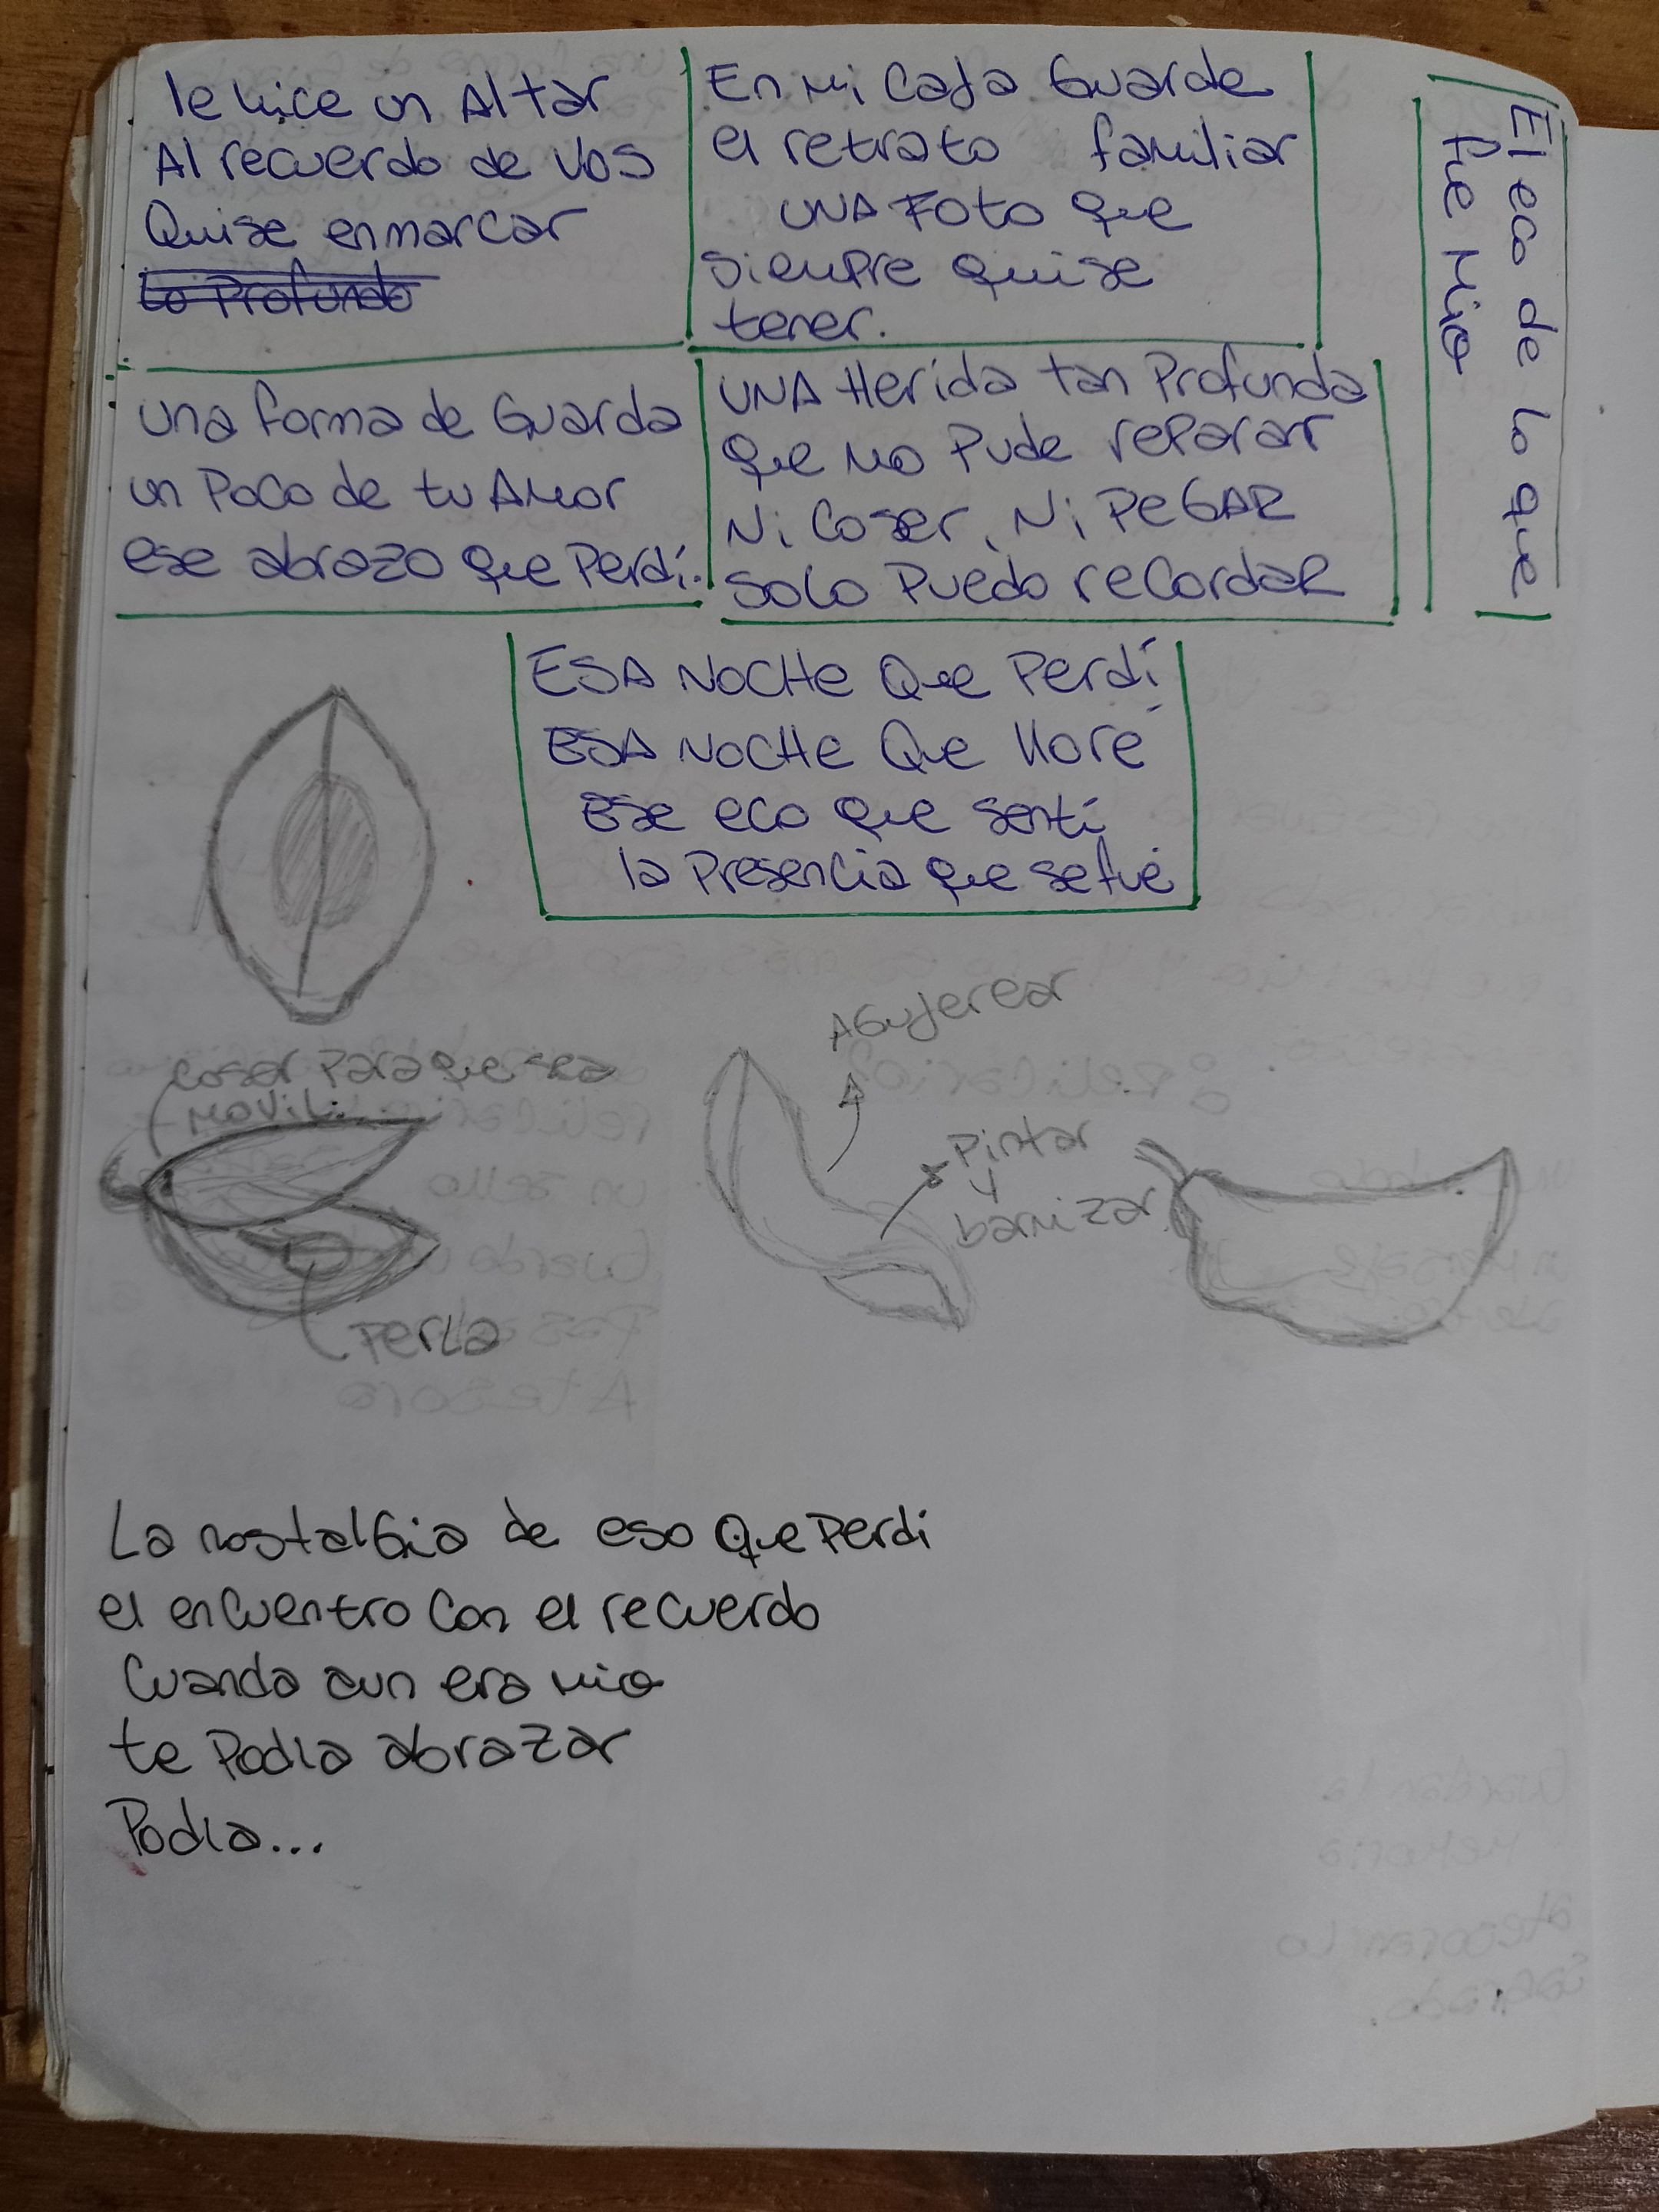 le hice un Altar
Al recuerdo de vos
Quise enmarcar
Lo Profundo
En mi Caja Guarde
el retrato familiar
UNA FOTO que
siempre quise
tener.
El eco de lo que
fue Mio
una forma de Guarda
un Poco de tu Amor
ese abrazo que Perdí.
UNA Herida tan Profunda
que no Pude reparar
Ni Coser, Ni PEGAR
solo Puedo recordar
ESA NOCHE Que Perdí
ESA NOCHE Que lloré
Ese eco que sentí
la Presencia que se fué
AGujerear
Coser Para que sea
movil
Pintar
y
barnizar
Perla
La nostalGia de eso que Perdi
el encuentro Con el recuerdo
Cuando aun era mio
te Podia abrazar
Podia...